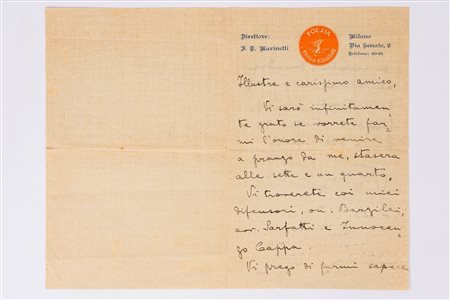 Direttore:
F. T. Marinetti
POESIA
Milano
Via Senato, 2
Telefono: 40-81
Illustre e carissimo amico,
Vi sarò infinitamen-
te grato se vorrete far-
mi l'onore di venire
a pranzo da me, stasera
alle sette e un quarto,
Vi troverete coi miei
difensori, on. Barzilai,
avv. Sarfatti e Innocen-
zo Cappa.
Vi prego di farmi sapere